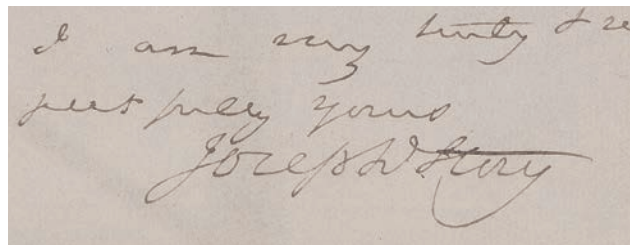 I am very truly & re
spectfully yours
Joseph Story